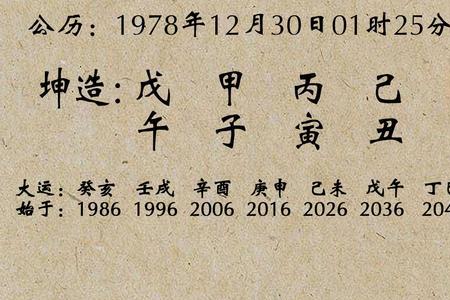 公历：1978年12月30日01时25分
坤造：戊 甲 丙 己
午 子 寅 丑
大运：癸亥 壬戌 辛酉 庚申 己未 戊午
始于：1986 1996 2006 2016 2026 2036